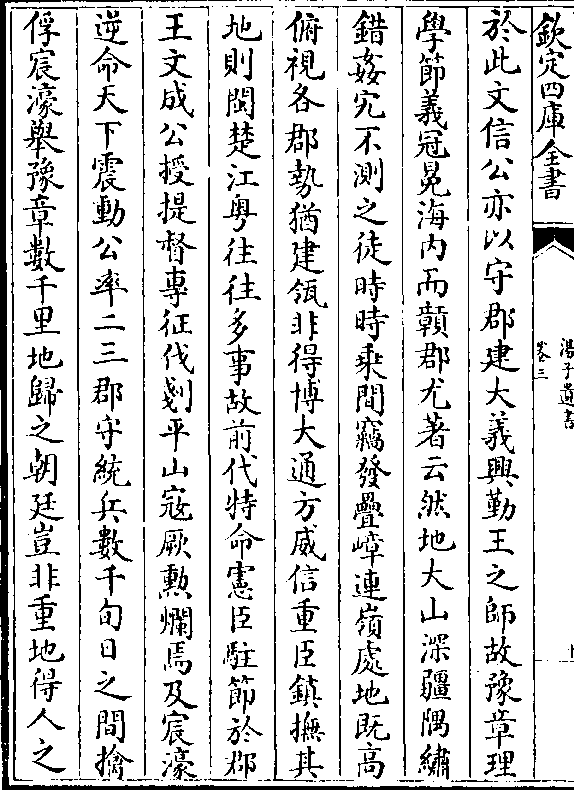 欽定四庫全書
湯子遺書
卷三
於此文信公亦以守郡建大義興勤王之師故豫章理
學節義冠冕海内而贑郡尤著云然地大山深疆隅繡
錯姦宄不測之徒時時乘間竊發疊嶂連嶺處地既高
俯視各郡勢猶建瓴非得博大通方威信重臣鎮撫其
地則閩楚江粤往往多事故前代特命憲臣駐節於郡
王文成公授提督專征伐剗平山寇厥勲爛焉及宸濠
逆命天下震動公率二三郡守統兵數千旬日之間擒
俘宸濠舉豫章數千里地歸之朝廷豈非重地得人之